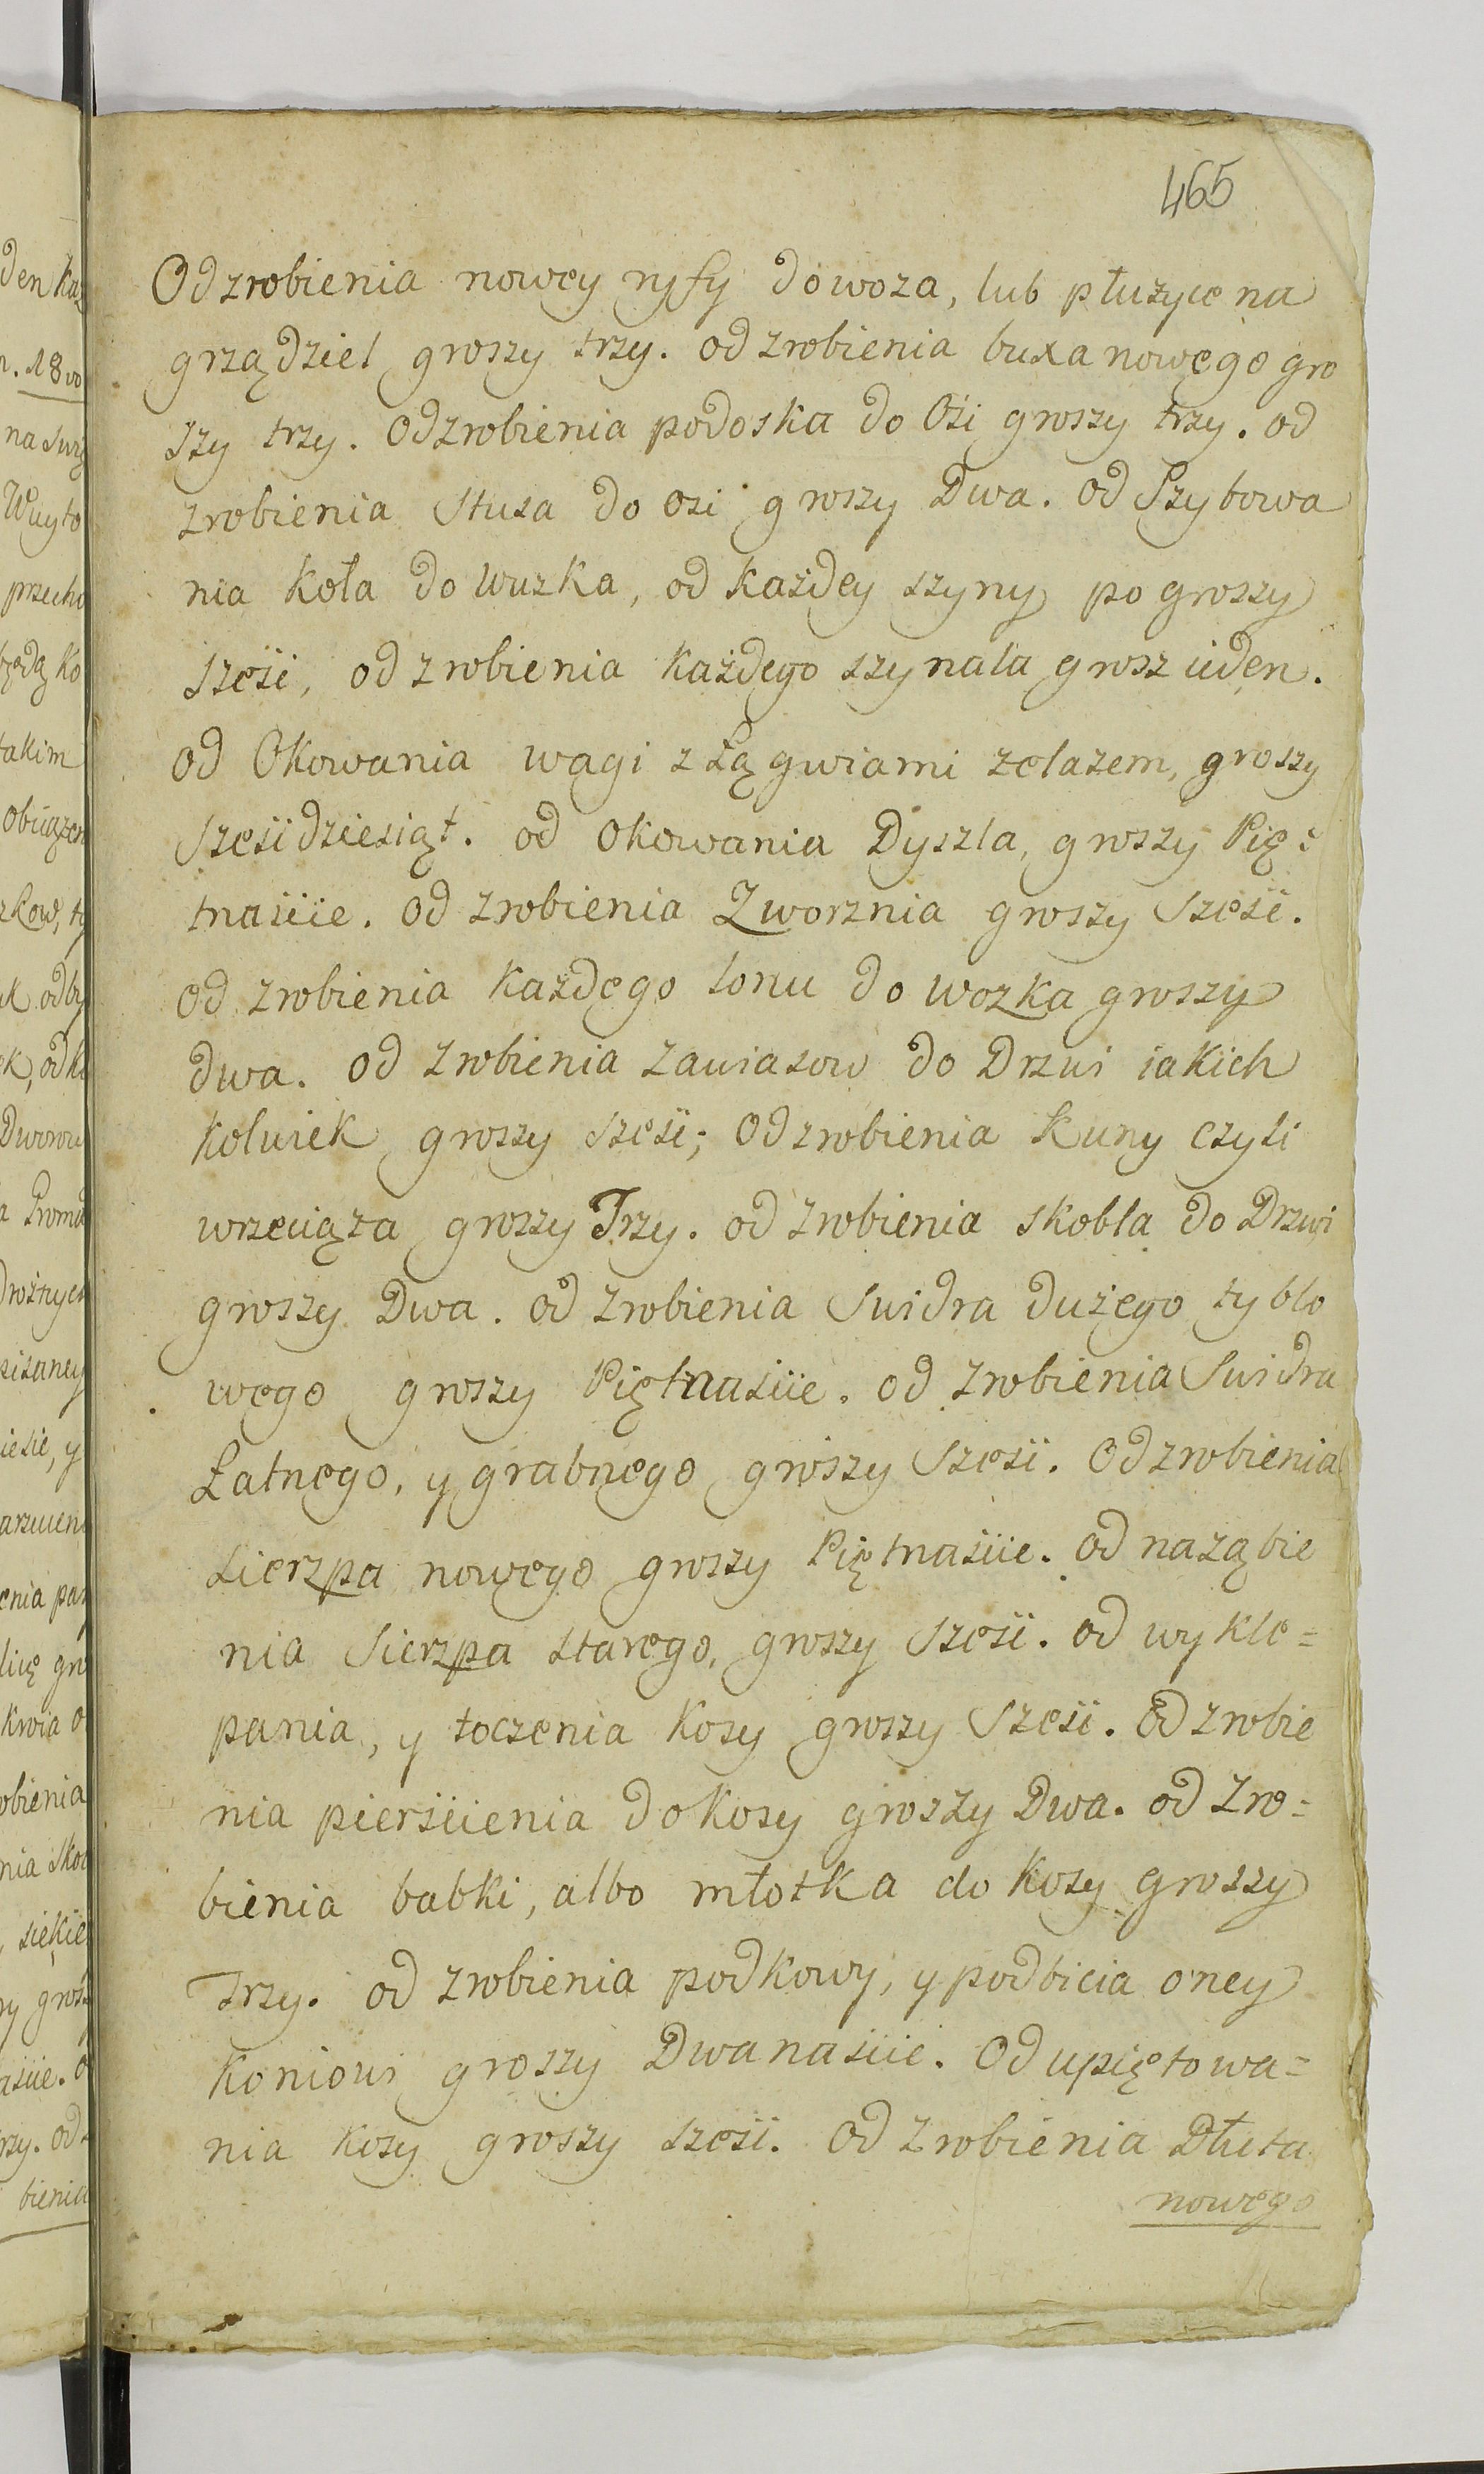 465
Od zrobienia nowey ryfy do woza, lub płużyce na
grządziel groszy trzy. od zrobienia buxa nowego gro
szy trzy. Od zrobienia podoska do Osi groszy trzy. od
zrobienia Stusa do osi groszy Dwa. od Szybowa
nia koła do wuzka, od każdey szyny po groszy
sześć, od zrobienia każdego szynala grosz ieden.
od Okowania wagi z Łągwiami zelazem, groszy
Sześćdziesiąt. od okowania Dyszla, groszy Pię=
tnaście. od zrobienia Zworznia groszy Sześć.
od zrobienia każdego lonu do wozka groszy
dwa. od zrobienia zawiasow do Drzwi iakich
kolwiek groszy sześć; Od zrobienia Kuny czyli
wrzeciąza groszy Trzy. od zrobienia skobla do Drzwi
groszy Dwa. od zrobienia Swidra dużego tyblo
wego groszy Piętnaście. od zrobienia Swidra
Łatnego, y grabnego groszy Sześć. Od zrobienia
sierzpa nowego groszy Piętnaście. od nazębie
nia Sierzpa starego, groszy sześć. od wykle=
pania, y toczenia Kosy groszy Sześć. od zrobie
nia pierścienia do Kosy groszy Dwa. od zro=
bienia babki, albo młotka do kosy groszy
Trzy. od zrobienia podkowy, y podbicia oney
koniowi groszy Dwanaście. Od upiętowa=
nia kosy groszy sześć. od zrobienia Dłuta
nowego